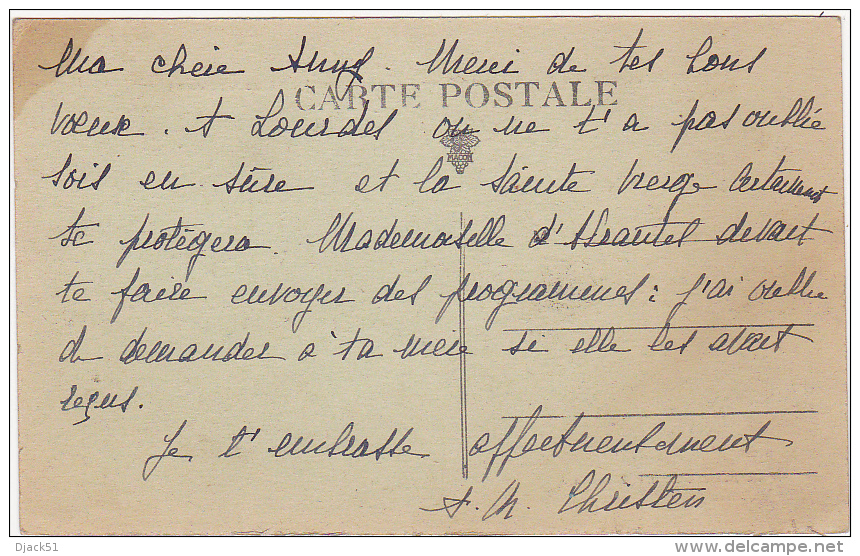 Ma chère Anny. Merci de tes bons
CARTE POSTALE
vœux. A Lourdes on ne t'a pas oubliée
MACON
sois en sûre et la Sainte Vierge certainement
te protègera. Mademoiselle devait
te faire envoyer des programmes : j'ai oublié
de demander à ta mère si elle les avait
reçus.
Je t'embrasse affectueusement
A. M. Christen
Djack51
www.delcampe.net